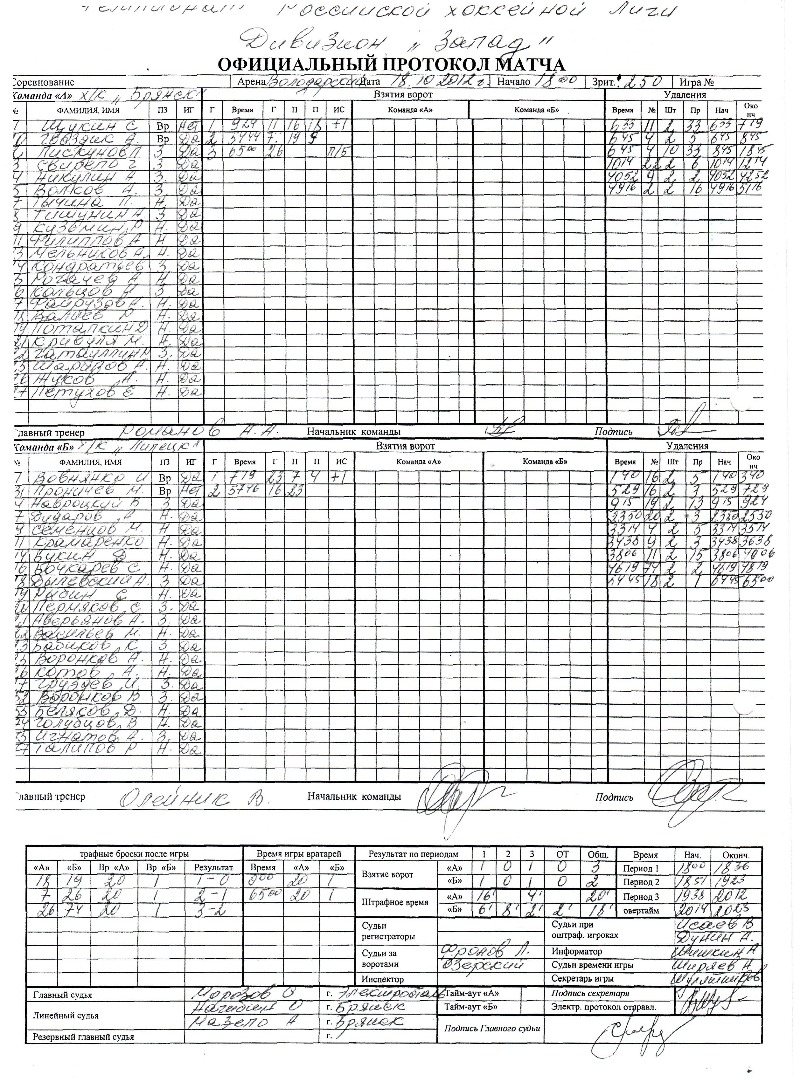 Чемпионат Российской хоккейной Лиги
Дивизион „Запад"
ОФИЦИАЛЬНЫЙ ПРОТОКОЛ МАТЧА
Соревнование Арена Володарский Дата 18.10.2012г Начало 18 00 Зрит. 250 Игра №
Команда «А» Х/К „Брянск Взятия ворот Удаления
№ ФАМИЛИЯ, ИМЯ ПЗ ИГ Г Время Г П П ИС Команда «А» Команда «Б» Время № Шт Пр Нач Око нч
Щукин С Вр Нет 1 924 11 16 18 +1 633 11 2 33 633 719
Гвоздик Вр Да 2 5444 7 19 9 645 4 2 5 645 845
Пискунов 3 Да 3 6500 26 П/Б 645 4 10 33 845 1845
Свирепо 3 Да 1014 22 2 6 1014 1214
4 Никулин А 3 Да 4052 9 2 2 4052 4252
5 Волков А. 3 Да 4916 2 2 16 4916 5116
7 Тычина П. Н. Да
8 Тишунин А 3 Да
9 Кузьмин Р Н Да
11 Филиппов А Н Да
13 Мельников А. Н. Да
Кондратьев 3 Да
Рогачев А Н. Да
Кольцов А 3 Да
Файрузов Н. Да
18 Валиев Р Н. Да
19 Потапкин Д Н. Да
Кривуля М. Н. Да
Гатауллин 3. Да
Шарипов А Н. Да
26 Жуков А. Н. Да
Петухов Е Н. Да
Главный тренер Романов А.А. Начальник команды Подпись
Команда «Б» Х/К „Липецк" Взятия ворот Удаления
№ ФАМИЛИЯ, ИМЯ ПЗ ИГ Г Время Г П П ИС Команда «А» Команда «Б» Время № Шт Пр Нач Око нч
Вовнянко И Вр Да 1 719 23 7 4 +1 140 16 2 5 140 340
Проничев М. Вр Нет 2 3746 16 23 529 16 2 3 529 729
4 Навроцкий В 3 Да 915 19 2 13 915 924
7 Дударов 3. Да 2330 20 2 3 2330 2530
Семенцов М. Н. Да 3314 4 2 5 3314 3514
11 Крамаренко Н. Да 3438 9 2 3 3438 3638
14 Букин Н Да 3806 11 2 15 3806 4006
16 Бочкарев С Н. Да 4619 74 2 2 4619 4819
18 Дылевский А 3. Да 6445 18 2 1 6445 6500
19 Рабин С Н. Да
Пермяков С 3. Да
Аверьянов А. 3. Да
Васильев М. Н. Да
Бабиков К 3. Да
Воронков А Н. Да
26 Котов А. Н. Да
Груздев И. 3. Да
Воронков В 3. Да
Беляков Д. Н. Да
Голубцов В Н. Да
Игнатов А. 3. Да
Талипов Р Н. Да
Главный тренер Олейник В. Начальник команды Подпись
трафные броски после игры Время игры вратарей Результат по периодам 1 2 3 ОТ Общ. Время Нач. Оконч.
«А» «Б» Вр «А» Вр «Б» Результат Время «А» «Б» Взятие ворот «А» 1 0 1 0 3 Период 1 1800 1836
18 19 20 1 1-0 000 20 1 «Б» 1 0 1 0 2 Период 2 1851 1923
7 26 20 1 2-1 6500 20 1 Штрафное время «А» 16' 4' 20' Период 3 1938 2012
26 74 20 1 3-2 «Б» 6' 8' 2' 2' 18' овертайм 2014 2023
Судьи регистраторы Судьи при оштраф. игроках Исаев В
Дунин А.
Судьи за воротами Фронов Л. Информатор Шишкин А
Озерский Судьи времени игры Ширяев Н.
Инспектор Секретарь игры
Главный судья Морозов О г. Электросталь Тайм-аут «А» Подпись секретаря
Линейный судья Нагибин О г. Брянск Тайм-аут «Б» Электр. протокол отправл.
Мазепо А г. Брянск Подпись Главного судьи
Резервный главный судья г.